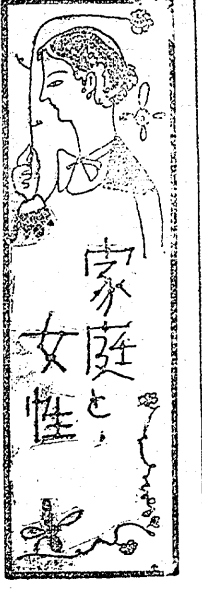 家庭と
女性